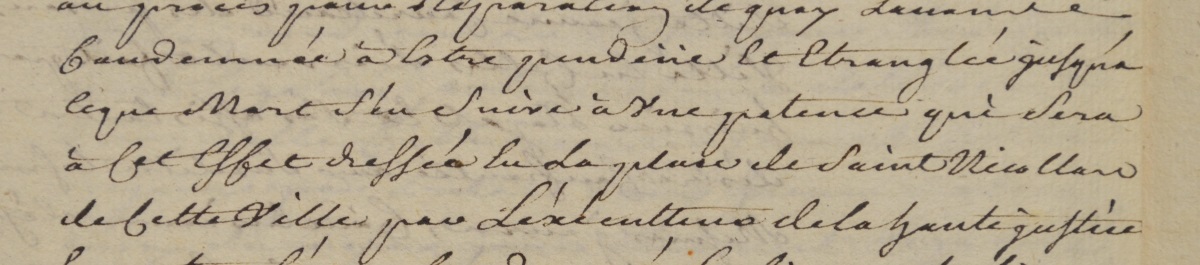 au procès pour Reparation de quoy Lavons
Condemnée à Estre pendüe Et Etranglée jusqu'a
ceque Mort S'en Suive à Une potence qui Sera
à Cet Effet dressée En La place de Saint Nicollas
de Cette Ville par L'éxécutteur de la haute justice